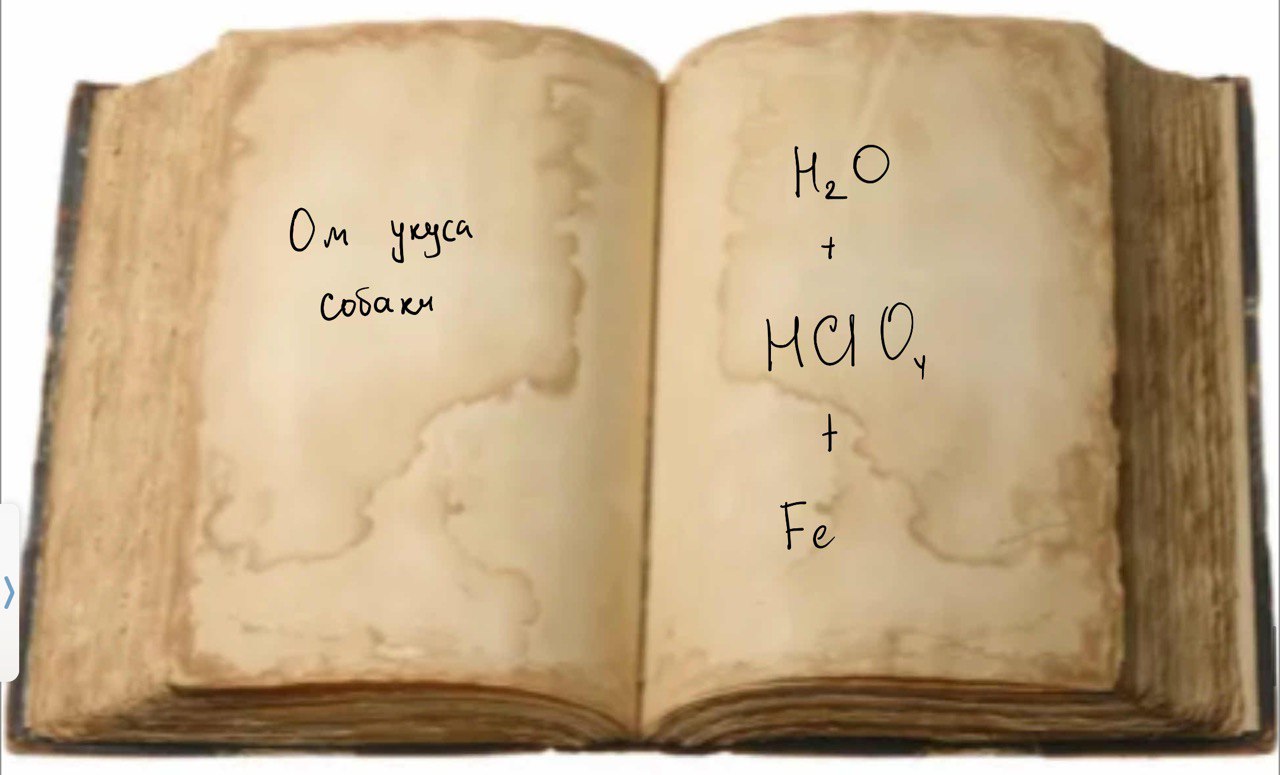 От укуса
собаки
H₂O
+
HClO₄
+
Fe